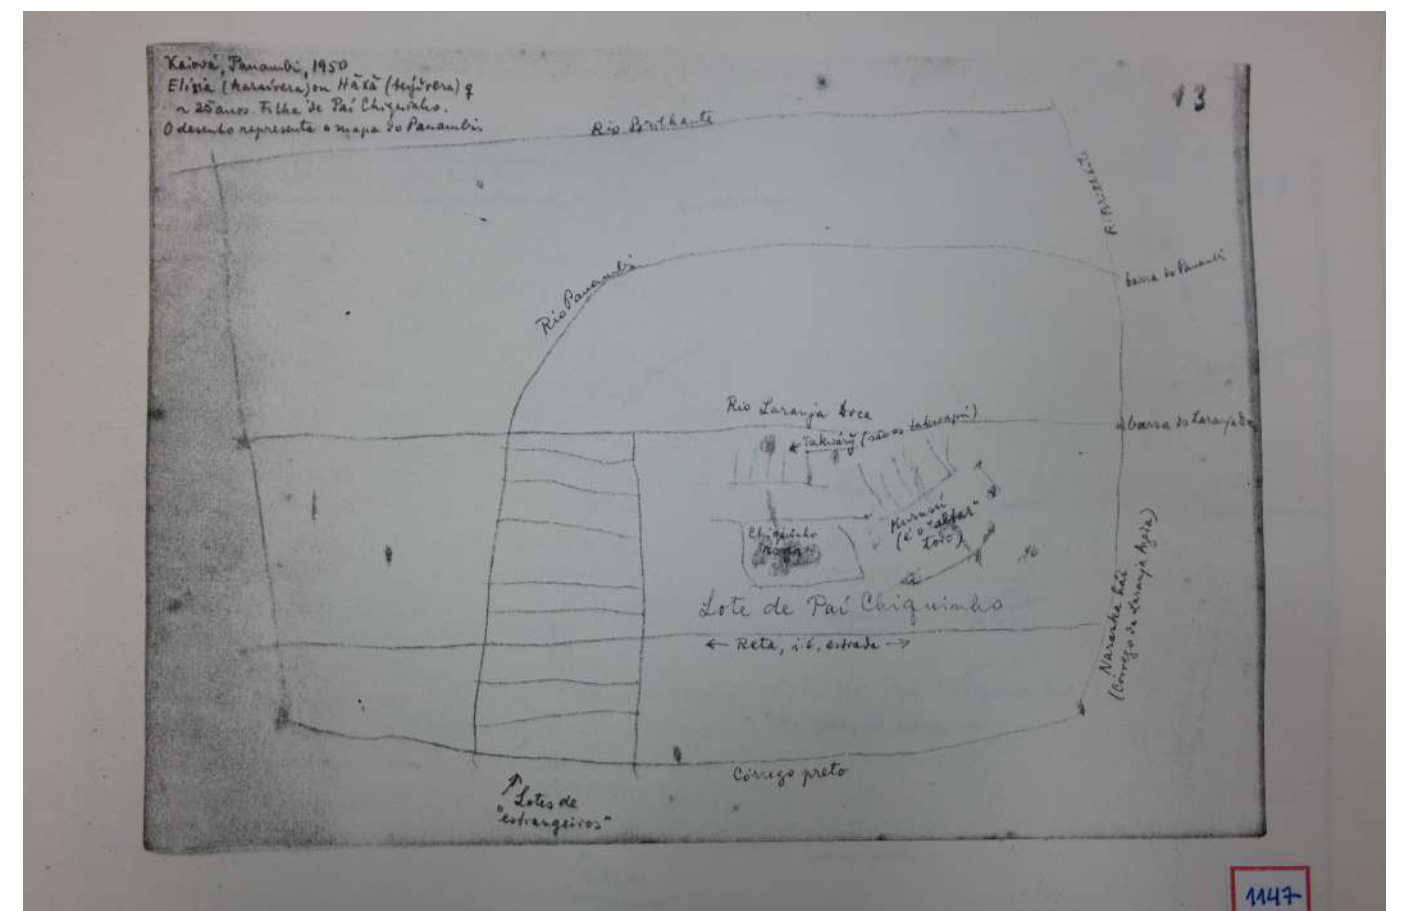 Kaiová, Panambi, 1950
Elízia (karaívera) ou Hãxã (tejúvera) ♀
~ 25 anos. Filha de Paí Chiquinho.
O desenho representa o mapa do Panambi.
13
Rio Brilhante
R. Brilhante
Rio Panambi
barra do Panambi
Rio Laranja Doce
barra do Laranja Do
← Takwárỹ (são os takwapú)
Chiquinho
Kurusú
(é o "altar"
todo)
Lote de Paí Chiquinho
← Reta, i.é, estrada →
(Córrego da Laranja Azêda)
Córrego preto
Lotes de
"estrangeiros"
1147